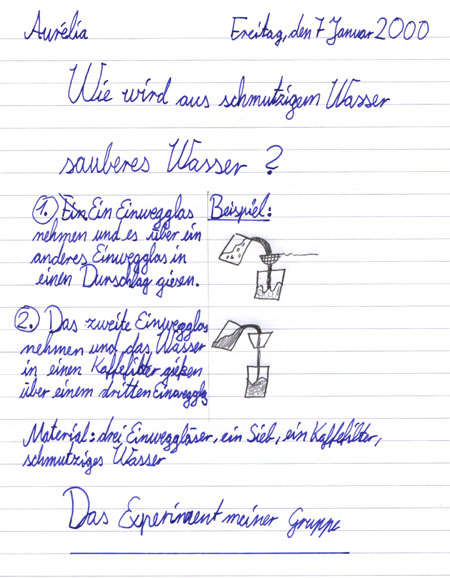 Aurélia
Freitag, den 7 Januar 2000
Wie wird aus schmutzigem Wasser
sauberes Wasser ?
1. Ein Ein Einwegglas
nehmen und es über ein
anderes Einwegglas in
einen Durschlag giesen.
Beispiel:
2. Das zweite Einwegglas
nehmen und das Wasser
in einen Kaffefilter gießen
über einem dritten Einwegglas
Material: drei Einweggläser, ein Sieb, ein Kaffefilter,
schmutziges Wasser
Das Experiment meiner Gruppe